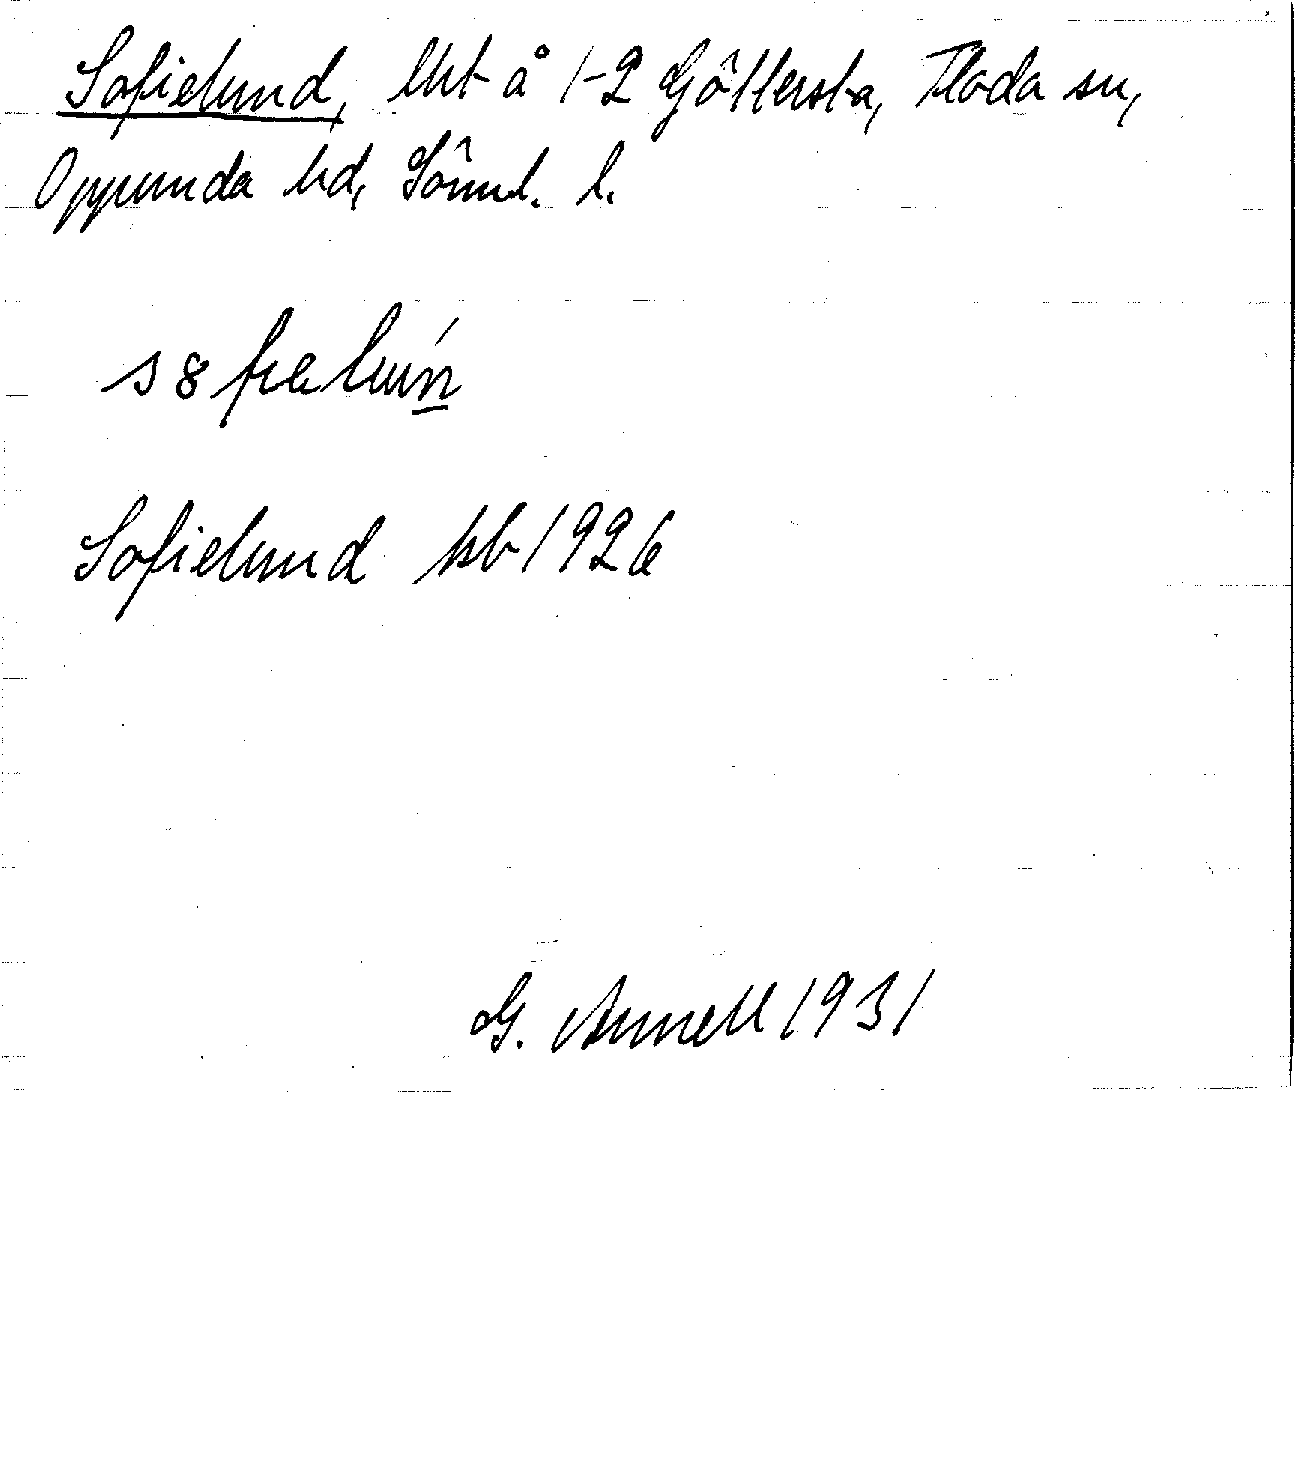 Sofielund, lht å 1-2 Gjöttersta, Floda sn,
Oppunda hd, Sörml. l.
Sofielund kb 1926
G. Annell 1931